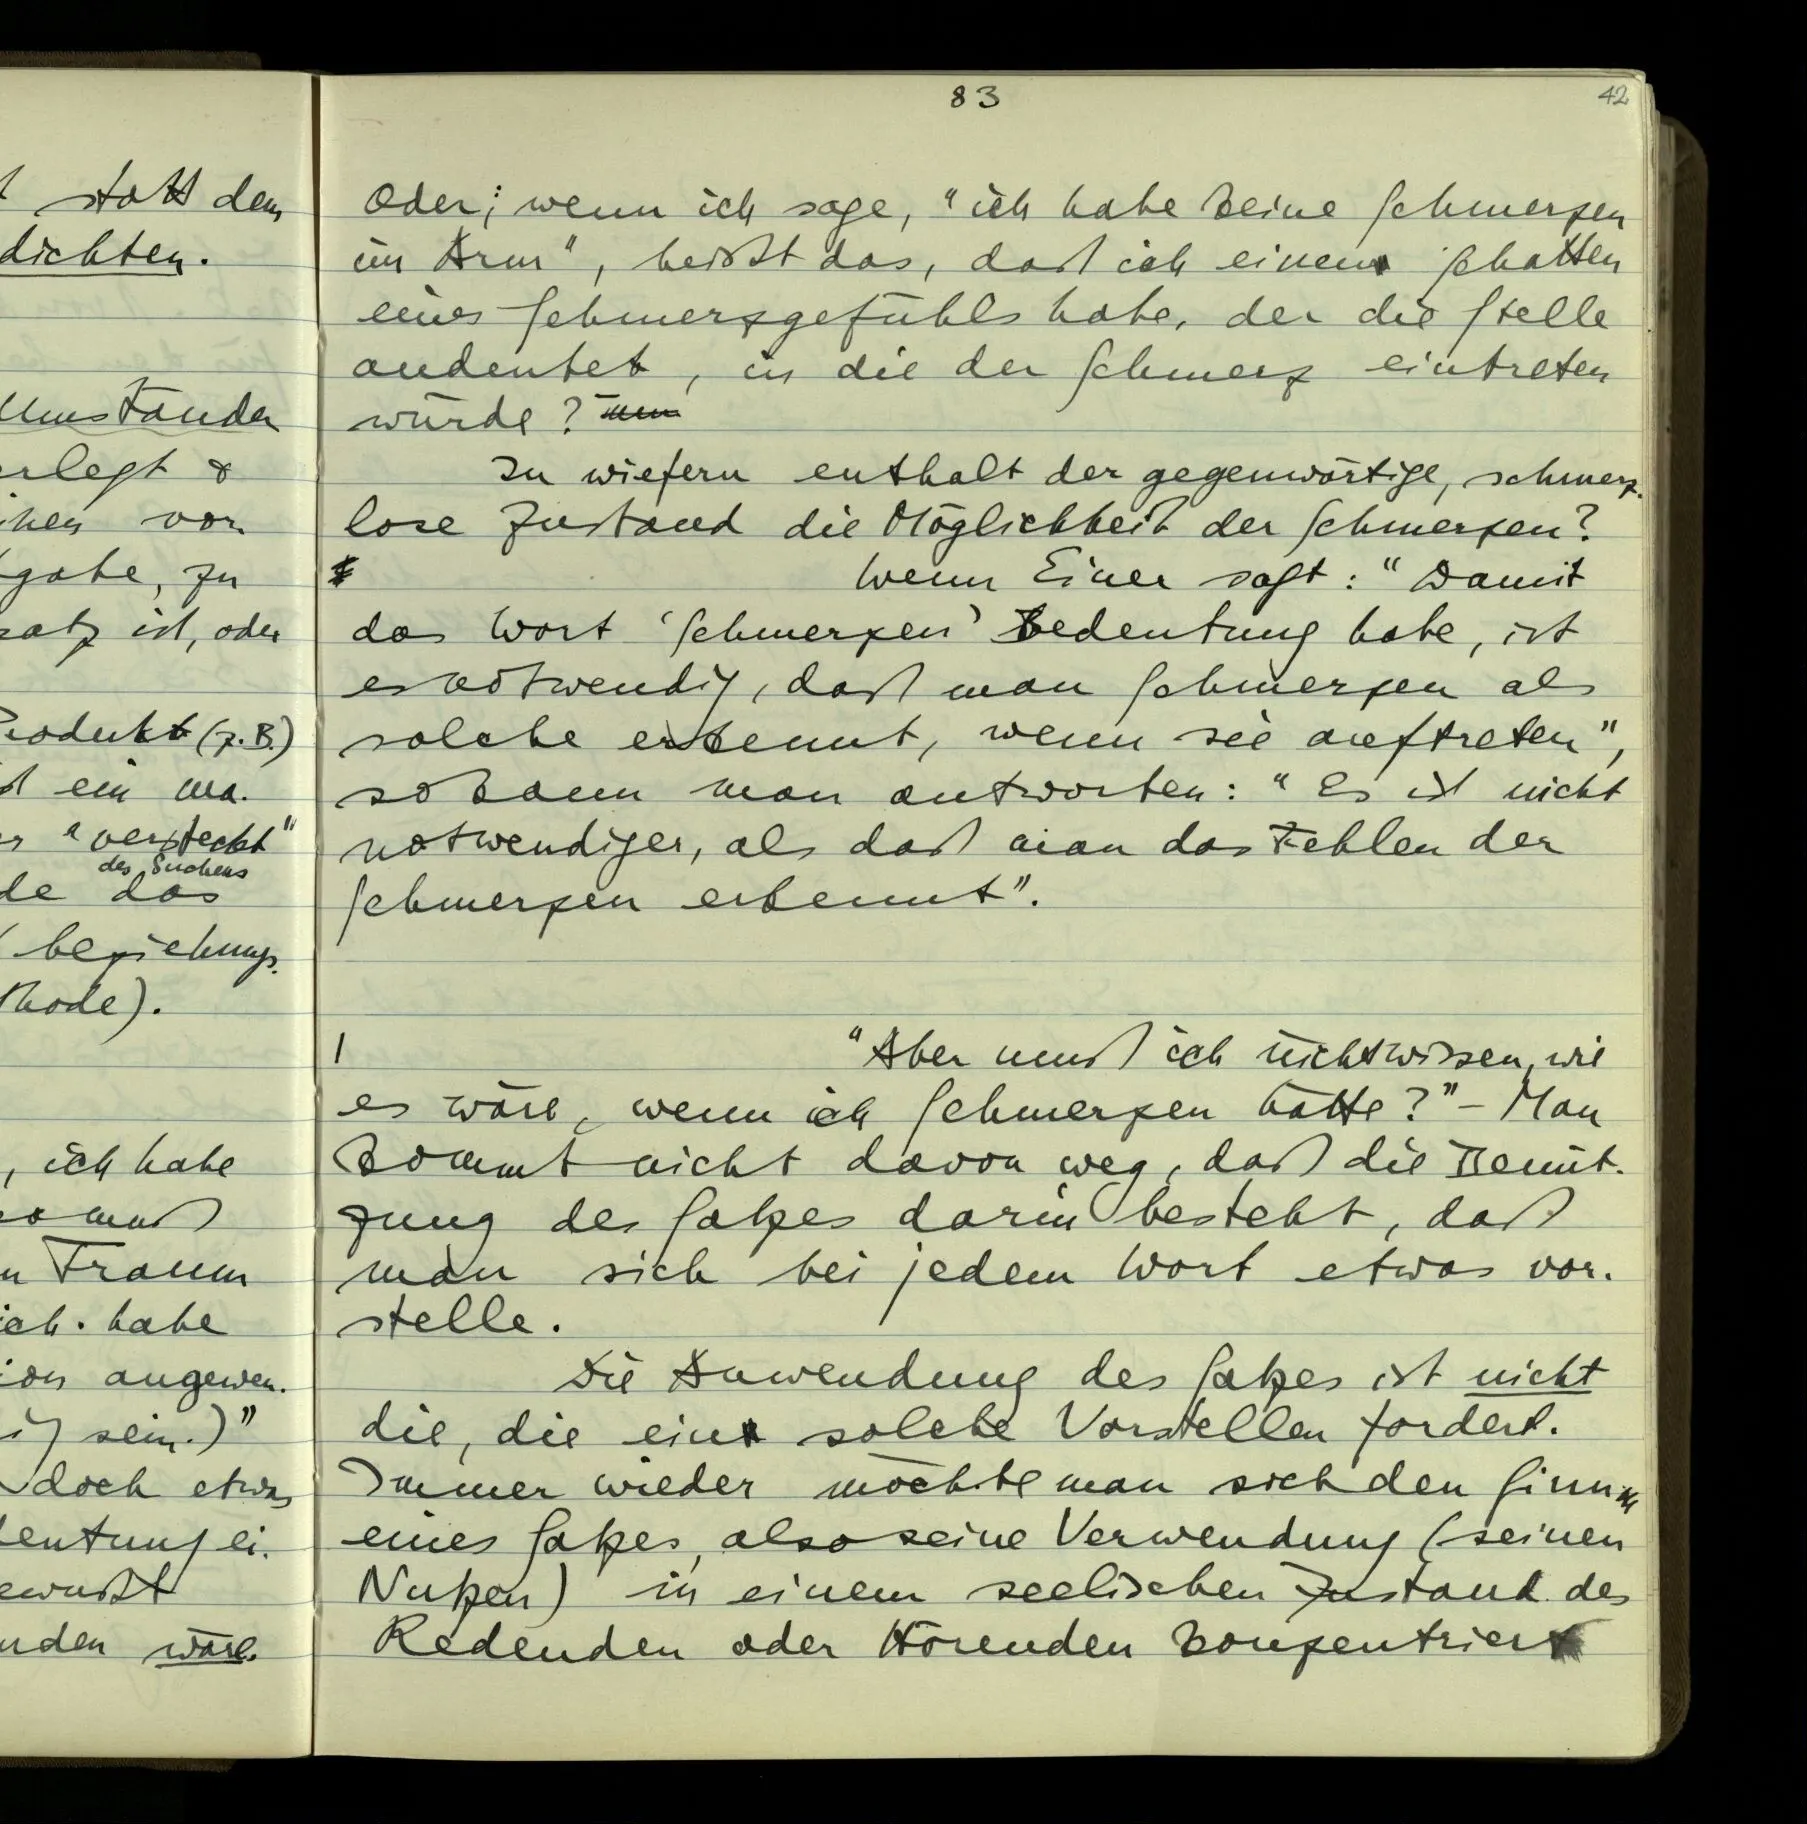 t statt dem
dichten.
Umständen
erlegt &
ihen von
gabe, zu
satz ist, oder
Produkt (z.B.)
st ein ma-
"versteckt"
des Suchens
de das
beziehungs-
thode).
, ich habe
so muß
n Traum
ich habe
ion angewen-
ig sein.)"
doch etwas
deutung ei-
ewußt
nden wäre.
83
42
Oder; wenn ich sage, "ich habe keine Schmerzen
im Arm", heißt das, daß ich einen Schatten
eines Schmerzgefühls habe, der die Stelle
andeutet, in die der Schmerz eintreten
würde?
In wiefern enthält der gegenwärtige, schmerz-
lose Zustand die Möglichkeit der Schmerzen?
Wenn Einer sagt: "Damit
das Wort 'Schmerzen' Bedeutung habe, ist
es notwendig, daß man Schmerzen als
solche erkennt, wenn sie auftreten",
so kann man antworten: "Es ist nicht
notwendiger, als daß man das Fehlen der
Schmerzen erkennt".
"Aber muß ich nicht wissen, wie
es wäre, wenn ich Schmerzen hätte?" – Man
kommt nicht davon weg, daß die Benüt-
zung des Satzes darin besteht, daß
man sich bei jedem Wort etwas vor-
stelle.
Die Anwendung des Satzes ist nicht
die, die ein solche Vorstellen fordert.
Immer wieder möchte man sich den Sinn
eines Satzes, also seine Verwendung (seinen
Nutzen) in einem seelischen Zustand des
Redenden oder Hörenden konzentriert